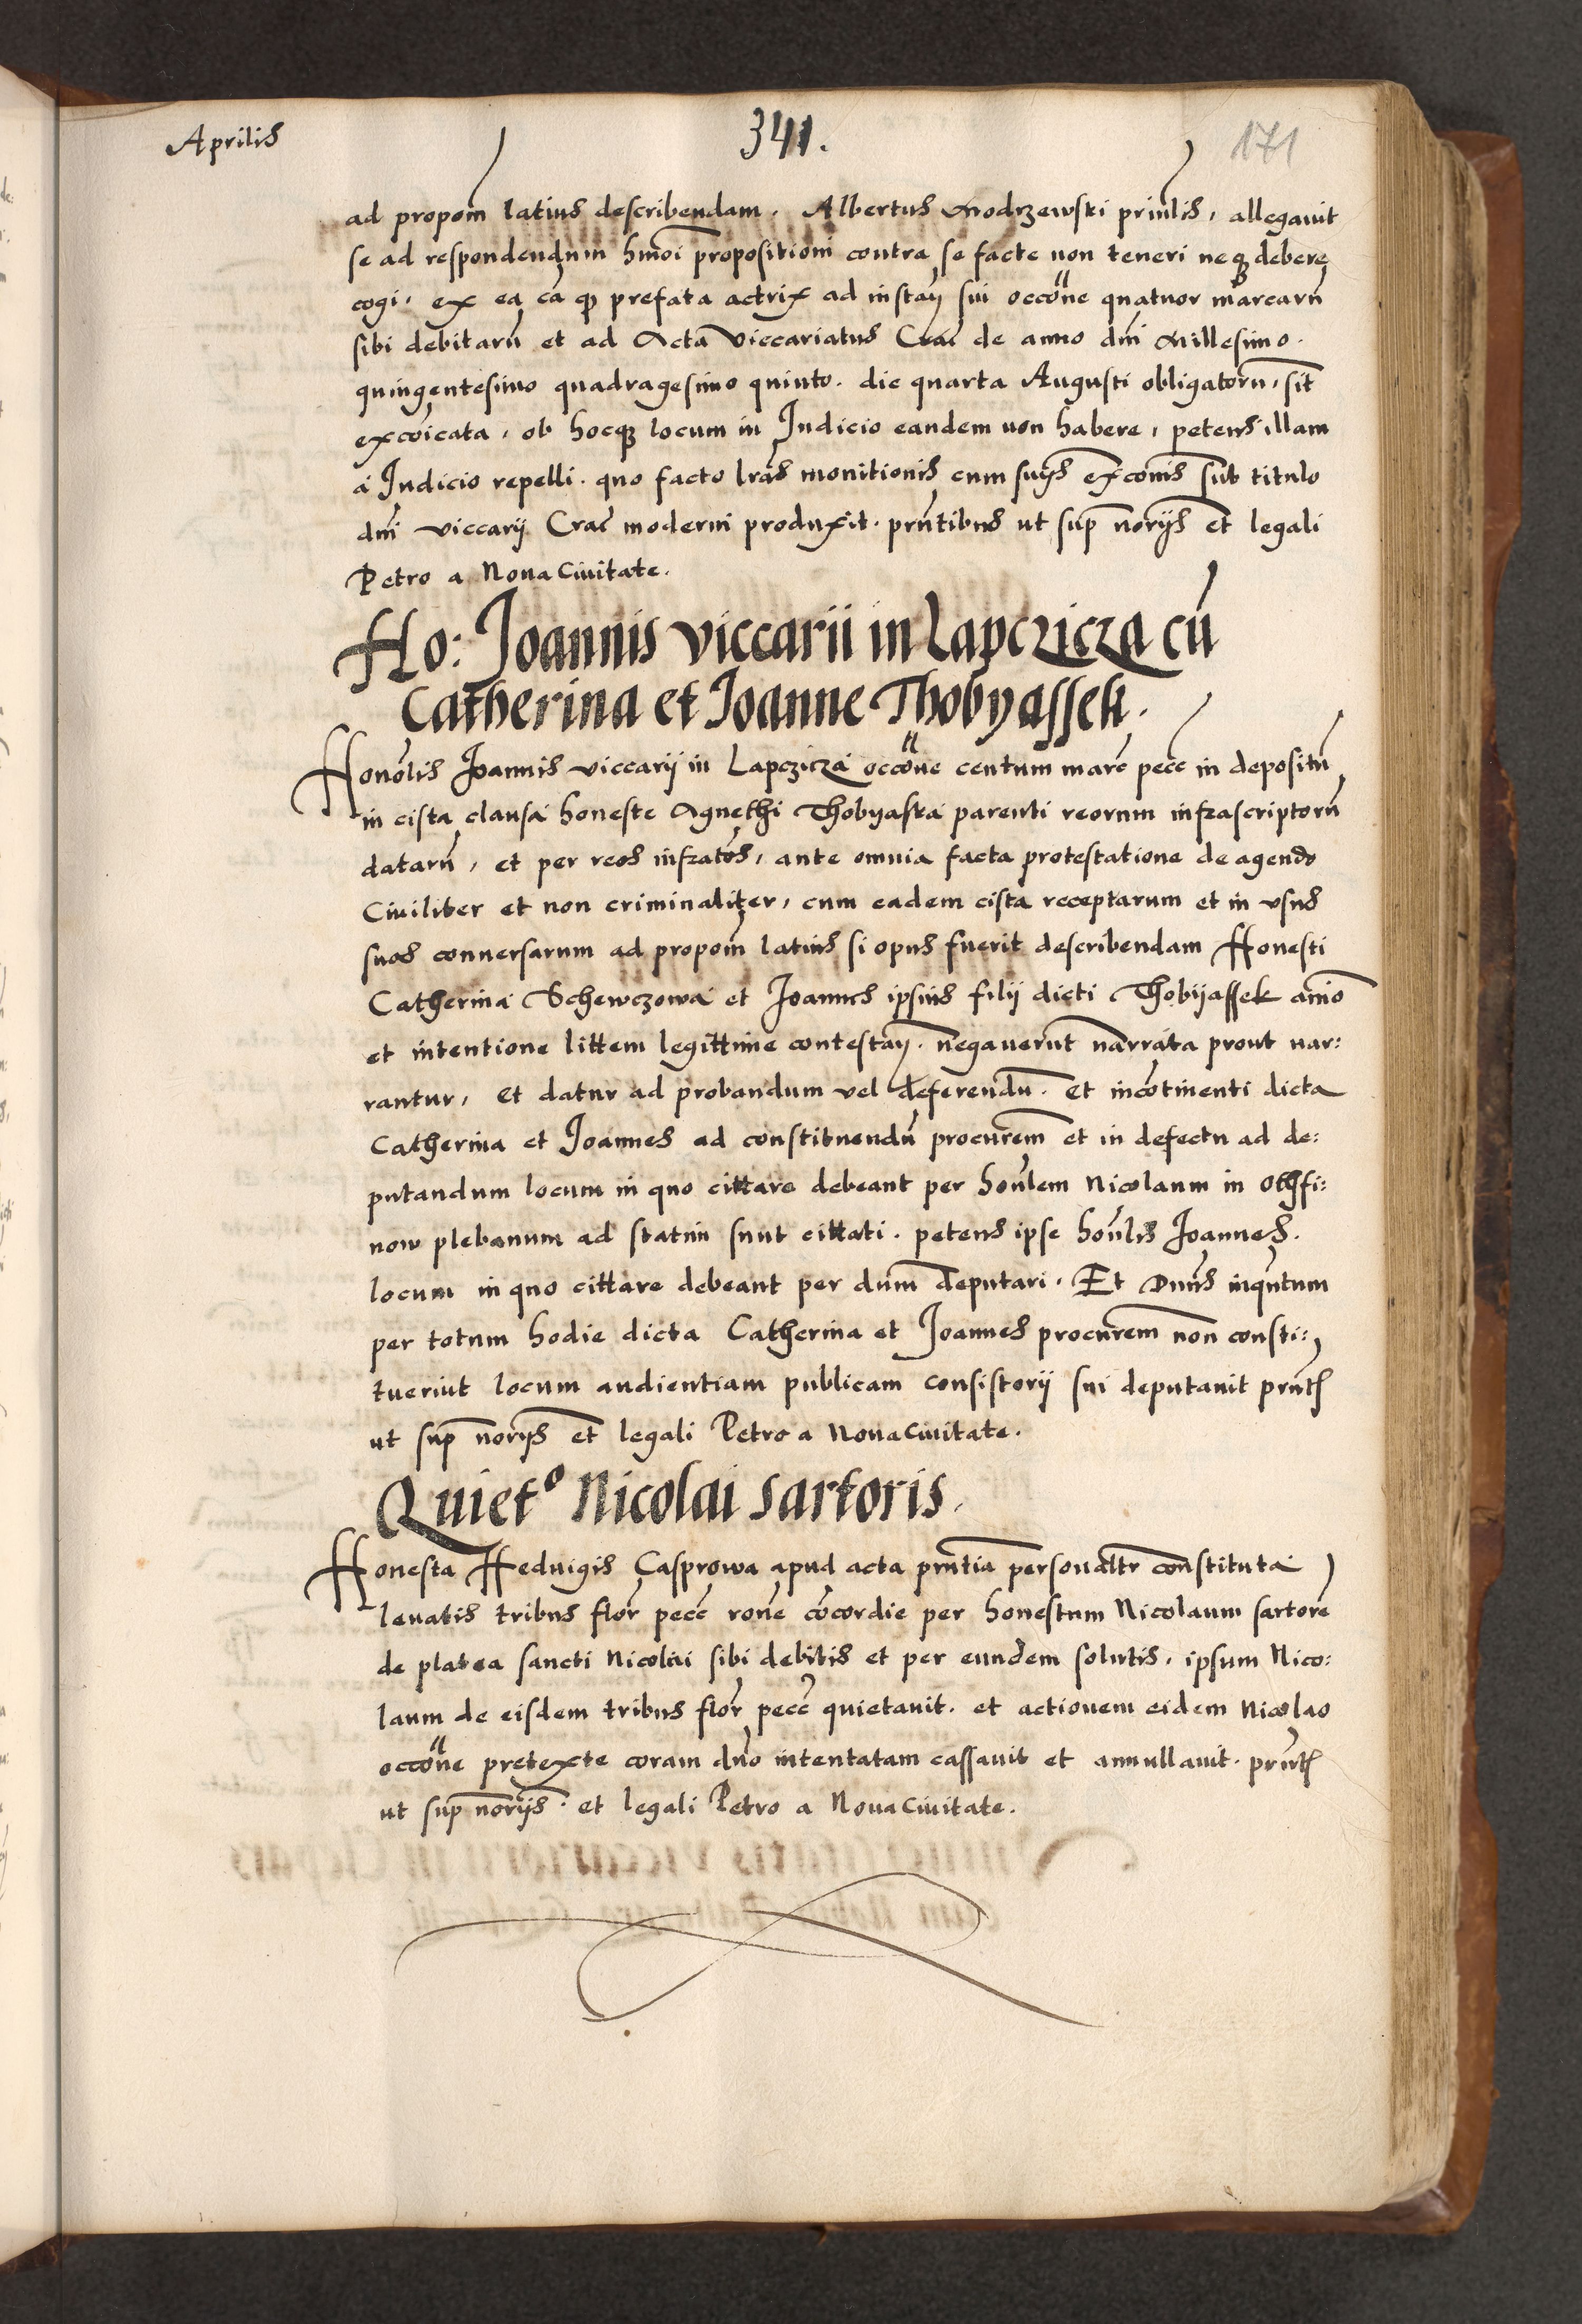 Aprilis
341.
171
ad propom̄ latius describendam. Albertus Modrzewski prin̄lis, allegauit
se ad respondendum hmōi propositioni contra se facte non teneri neqꝫ debere
cogi, ex ea cā qꝫ prefata actrix ad instaṅ sui occōne quatuor marcarū
sibi debitarū et ad Acta Viccariatus Crac̄ de anno dn̄i Millesimo.
quingentesimo quadragesimo quinto. die quarta Augusti obligatorū, sit
excōicata, ob hocqꝫ locum in Iudicio eandem non habere, petens illam
a Iudicio repelli. quo facto lrās monitionis cum suijs excōnis sub titulo
dn̄i viccarij Crac̄ moderni produxit. prn̄tibus ut sup̄ norijs et legali
Petro a Noua Ciuitate.
Ho: Joannis Viccarii in Lapczicza cū
Catherina et Joanne Thobyassek.
Honōlis Joannis viccarij in Lapczicza occōne centum marc̄ pecc̄ in depositū
in cista clausa honeste Agnethi Thobyaska parenti reorum infrascriptorū
datarū, et per reos infratōs, ante omnia facta protestatione de agendo
Ciuiliter et non criminaliter, cum eadem cista receptarum et in vsus
suos conuersarum ad propom̄ latius si opus fuerit describendam Honesti
Catherina Schewczowa et Joannes ipsius filij dicti Thobijassek anīo
et intentione littem legittime contestaṅ. negauerunt narrata prout nar:
rantur, et datur ad probandum vel deferendū. Et incōtinenti dicta
Catherina et Joannes ad constituendū procurēm et in defectu ad de:
putandum locum in quo cittare debeant per honl̄em Nicolaum in Othfi:
now plebanum ad statim sunt cittati. petens ipse honl̄is Joannes.
locum in quo cittare debeant per dum̄ deputari. Et Dnūs inqn̄tum
per totum hodie dicta Catherina et Joannes procurēm non consti:
tuerint locum audientiam publicam consistorij sui deputauit prn̄t
ut sup̄ norijs et legali Petro a Nouaciuitate.
Quiet° Nicolai sartoris.
Honesta Heduigis Casprowa apud acta prn̄tia personalītr constituta
leuatis tribus flor̄ pecc̄ rōne cōcordie per honestum Nicolaum sartorē
de platea sancti Nicolai sibi debitis et per eundem solutis, ipsum Nico:
laum de eisdem tribus flor̄ pecc̄ quietauit. et actionem eidem Nicolao
occōne pretexte coram dn̄o intentatam cassauit et annullauit. prn̄t
ut sup̄ norijs. et legali Petro a Nouaciuitate.